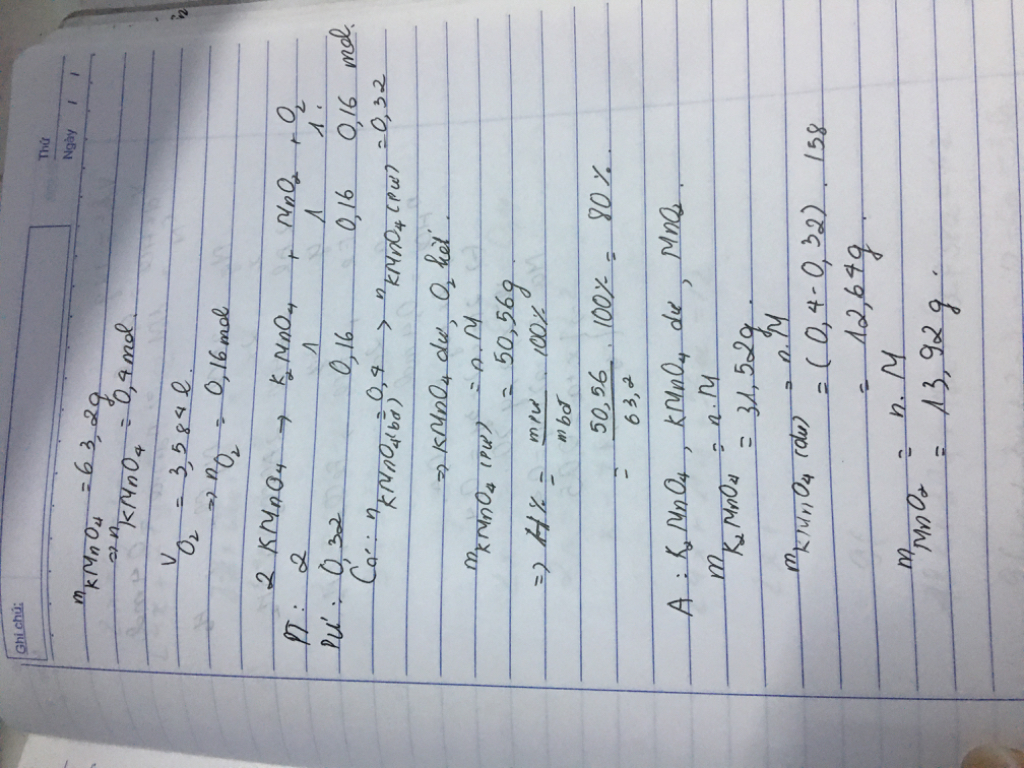 Ghi chú:
Thứ
Ngày / /
m KMnO4 = 63,2g
=> n KMnO4 = 0,4 mol.
V O2 = 3,584 l.
=> n O2 = 0,16 mol
2 KMnO4 → K2MnO4 + MnO2 + O2
PT: 2 1 1 1.
PƯ: 0,32 0,16 0,16 0,16 mol.
Có: n KMnO4 (bđ) = 0,4 > n KMnO4 (pư) = 0,32
=> KMnO4 dư, O2 hết.
m KMnO4 (pư) = n.M
= 50,56g
=> H% = mpư / mbđ . 100%
= 50,56 / 63,2 . 100% = 80%.
A: K2MnO4, KMnO4 dư, MnO2.
m K2MnO4 = n.M
= 31,52g.
m KMnO4 (dư) = n.M
= (0,4-0,32). 158
= 12,64g.
m MnO2 = n.M
= 13,92g.